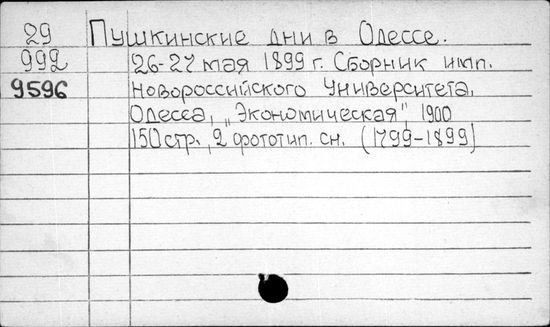 29 Пушкинские дни в Одессе.
992 26-27 мая 1899 г. Сборник имп.
9596 Новороссийского Университета.
Одесса, „Экономическая", 1900
150 стр., 2 фототип. сн. (1799-1899)